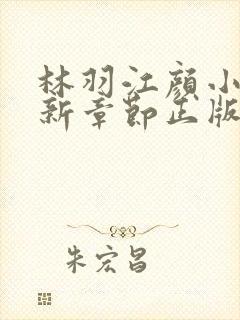 林羽江颜小
新章节出版
朱宏昌